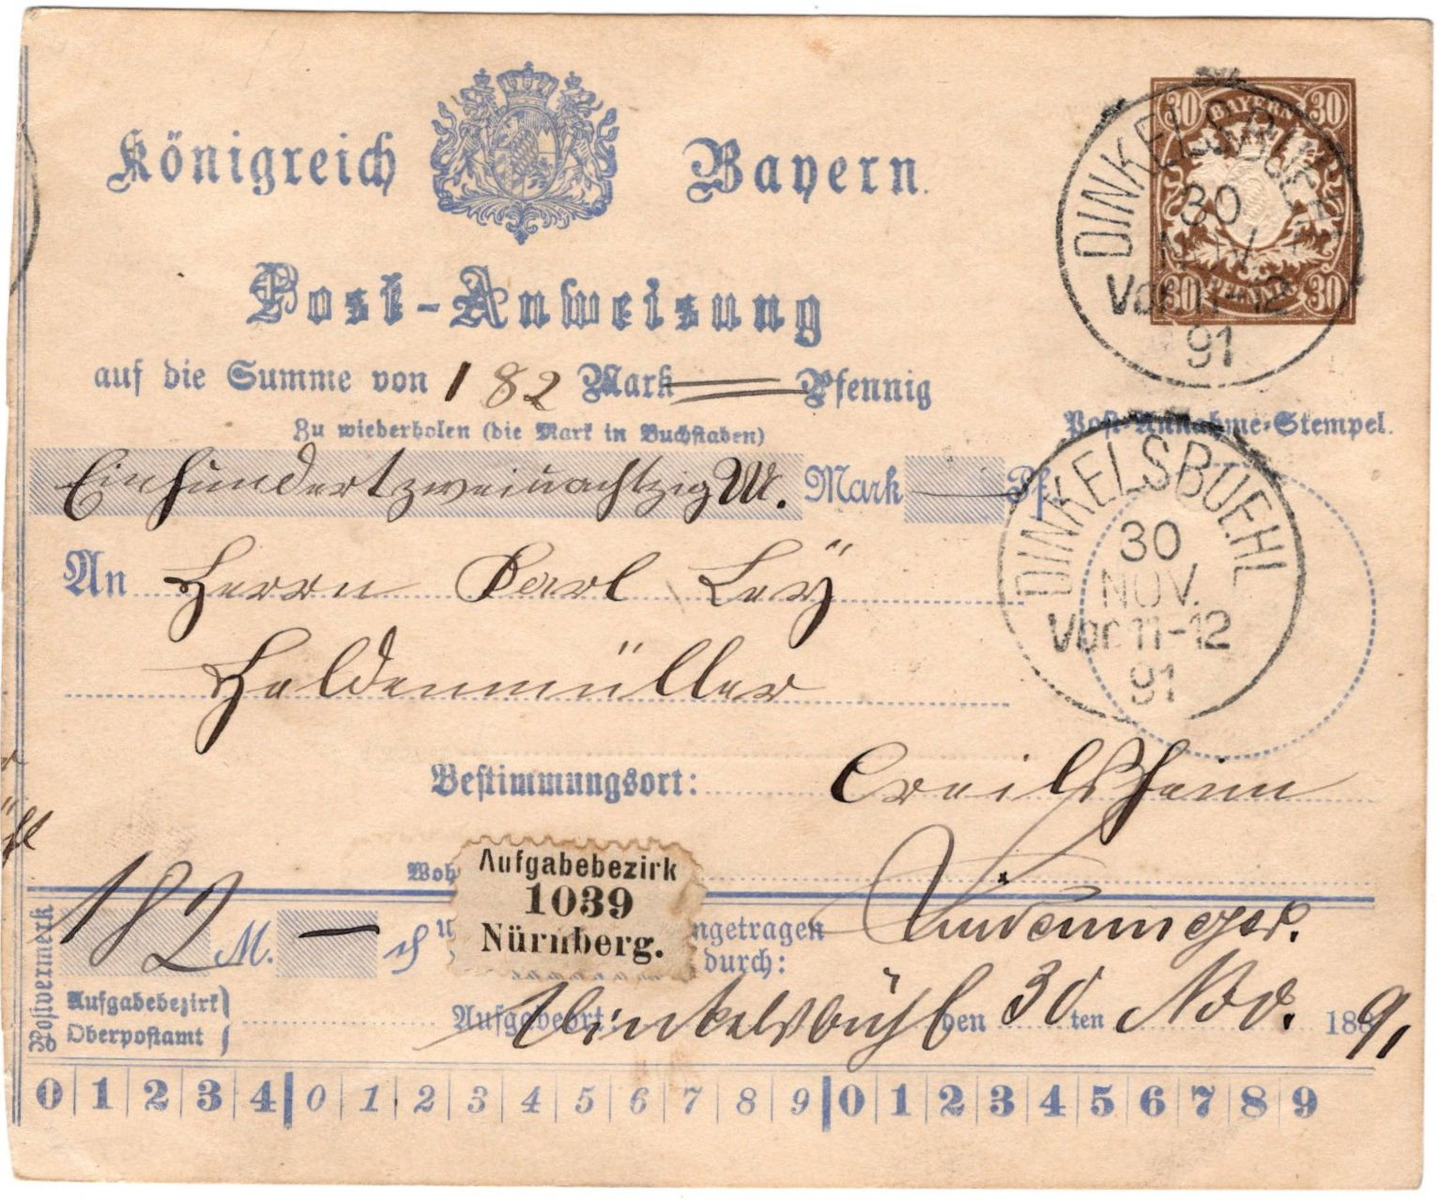 Königreich Bayern.
30 BAYERN 30
30 PFENNIG 30
DINKELSBUEHL
30
NOV.
Vor 11-12
91
Post-Anweisung
auf die Summe von 182 Mark Pfennig
Zu wiederholen (die Mark in Buchstaben)
Post-Annahme-Stempel.
Einhundertzweiundachtzig M. Mark — Pf.
DINKELSBUEHL
30
NOV.
Vor 11-12
91
An Herrn Carl Ley
Heldenmüller
Bestimmungsort: Creilsheim
Woh
Aufgabebezirk
1039
Nürnberg.
Postvermerk
182 M. — ₰
ngetragen
durch:
Aufgabebezirk
Oberpostamt
Aufgabeort: Dinkelsbühl den 30 ten Nov. 1891
0 1 2 3 4 0 1 2 3 4 5 6 7 8 9 0 1 2 3 4 5 6 7 8 9